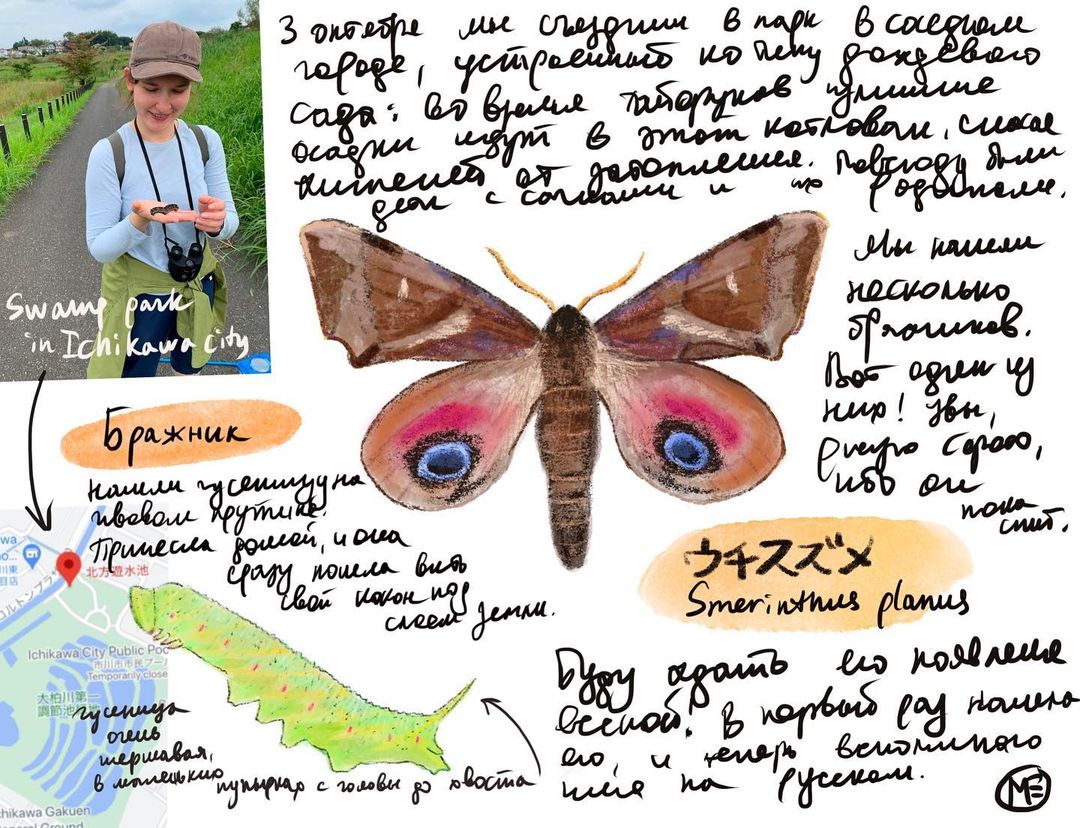 3 октября мы съездили в парк в соседнем
городе, устроенный по типу дождевого
сада: во время тайфунов лишние
осадки идут в этот котлован, спасая
жителей от затопления. Повсюду были
дети с сачками и их родители.
Swamp park
in Ichikawa city
Мы нашли
несколько
бражников.
Вот один из
них! Увы,
рисую заранее,
ибо он
пока
спит.
Бражник
нашли гусеницу на
ивовом прутике.
Принесла домой, и она
сразу пошла вить
свой кокон под
слоем земли.
ウチスズメ
Smerinthus planus
гусеница
очень
шершавая,
в маленьких пупырках с головы до хвоста
Буду ждать его появления
весной. В первый раз нашла
его, и теперь вспомнила
имя на русском.
北方遊水池
コルトンプラ
Ichikawa City Public Poo
市川市市民プー
Temporarily close
大柏川第一
調節池
hikawa Gakuen
neral Ground
ME